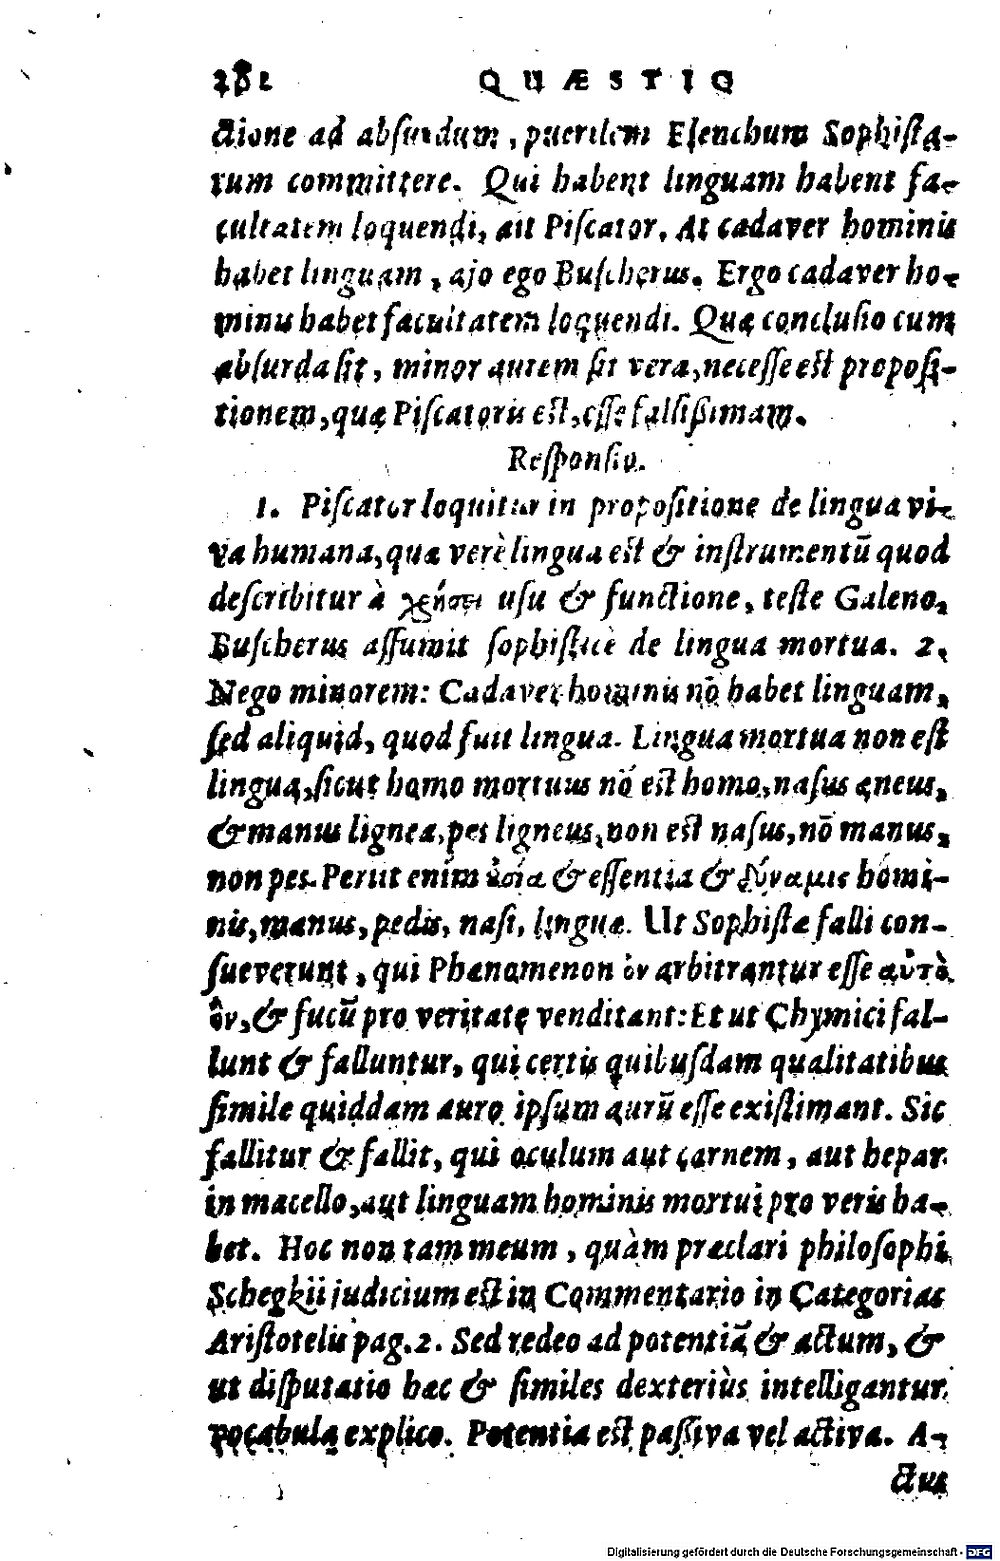 282 QUÆSTIO
ctione ad absurdum, puerilem Elenchum Sophista-
rum committere. Qui habent linguam habent fa-
cultatem loquendi, ait Piscator. At cadaver hominis
habet linguam, ajo ego Buscherus. Ergo cadaver ho-
minis habet facultatem loquendi. Quæ conclusio cum
absurda sit, minor autem sit vera, necesse est proposi-
tionem, quæ Piscatoris est, esse falsissimam.
Responsio.
1. Piscator loquitur in propositione de lingua vi-
va humana, quæ verè lingua est & instrumentū quod
describitur à χρήσει usu & functione, teste Galeno,
Buscherus assumit sophisticè de lingua mortua. 2.
Nego minorem: Cadaver hominis nō habet linguam,
sed aliquid, quod fuit lingua. Lingua mortua non est
lingua, sicut homo mortuus nō est homo, nasus æneus,
& manus lignea, pes ligneus, non est nasus, nō manus,
non pes. Periit enim ὐσία & essentia & δύναμις homi-
nis, manus, pedis, nasi, linguæ. Ut Sophistæ falli con-
sueverunt, qui Phænomenon ὸν arbitrantur esse αὐτὸ
ὂν, & fucū pro veritate venditant: Et ut Chymici fal-
lunt & falluntur, qui certis quibusdam qualitatibus
simile quiddam auro ipsum aurū esse existimant. Sic
fallitur & fallit, qui oculum aut carnem, aut hepar
in macello, aut linguam hominis mortui pro veris ha-
bet. Hoc non tam meum, quàm præclari philosophi
Schegkii judicium est in Commentario in Categorias
Aristotelis pag. 2. Sed redeo ad potentiā & actum, &
ut disputatio hæc & similes dexteriùs intelligantur
vocabula explico. Potentia est passiva vel activa. A-
ctus
Digitalisierung gefördert durch die Deutsche Forschungsgemeinschaft - DFG